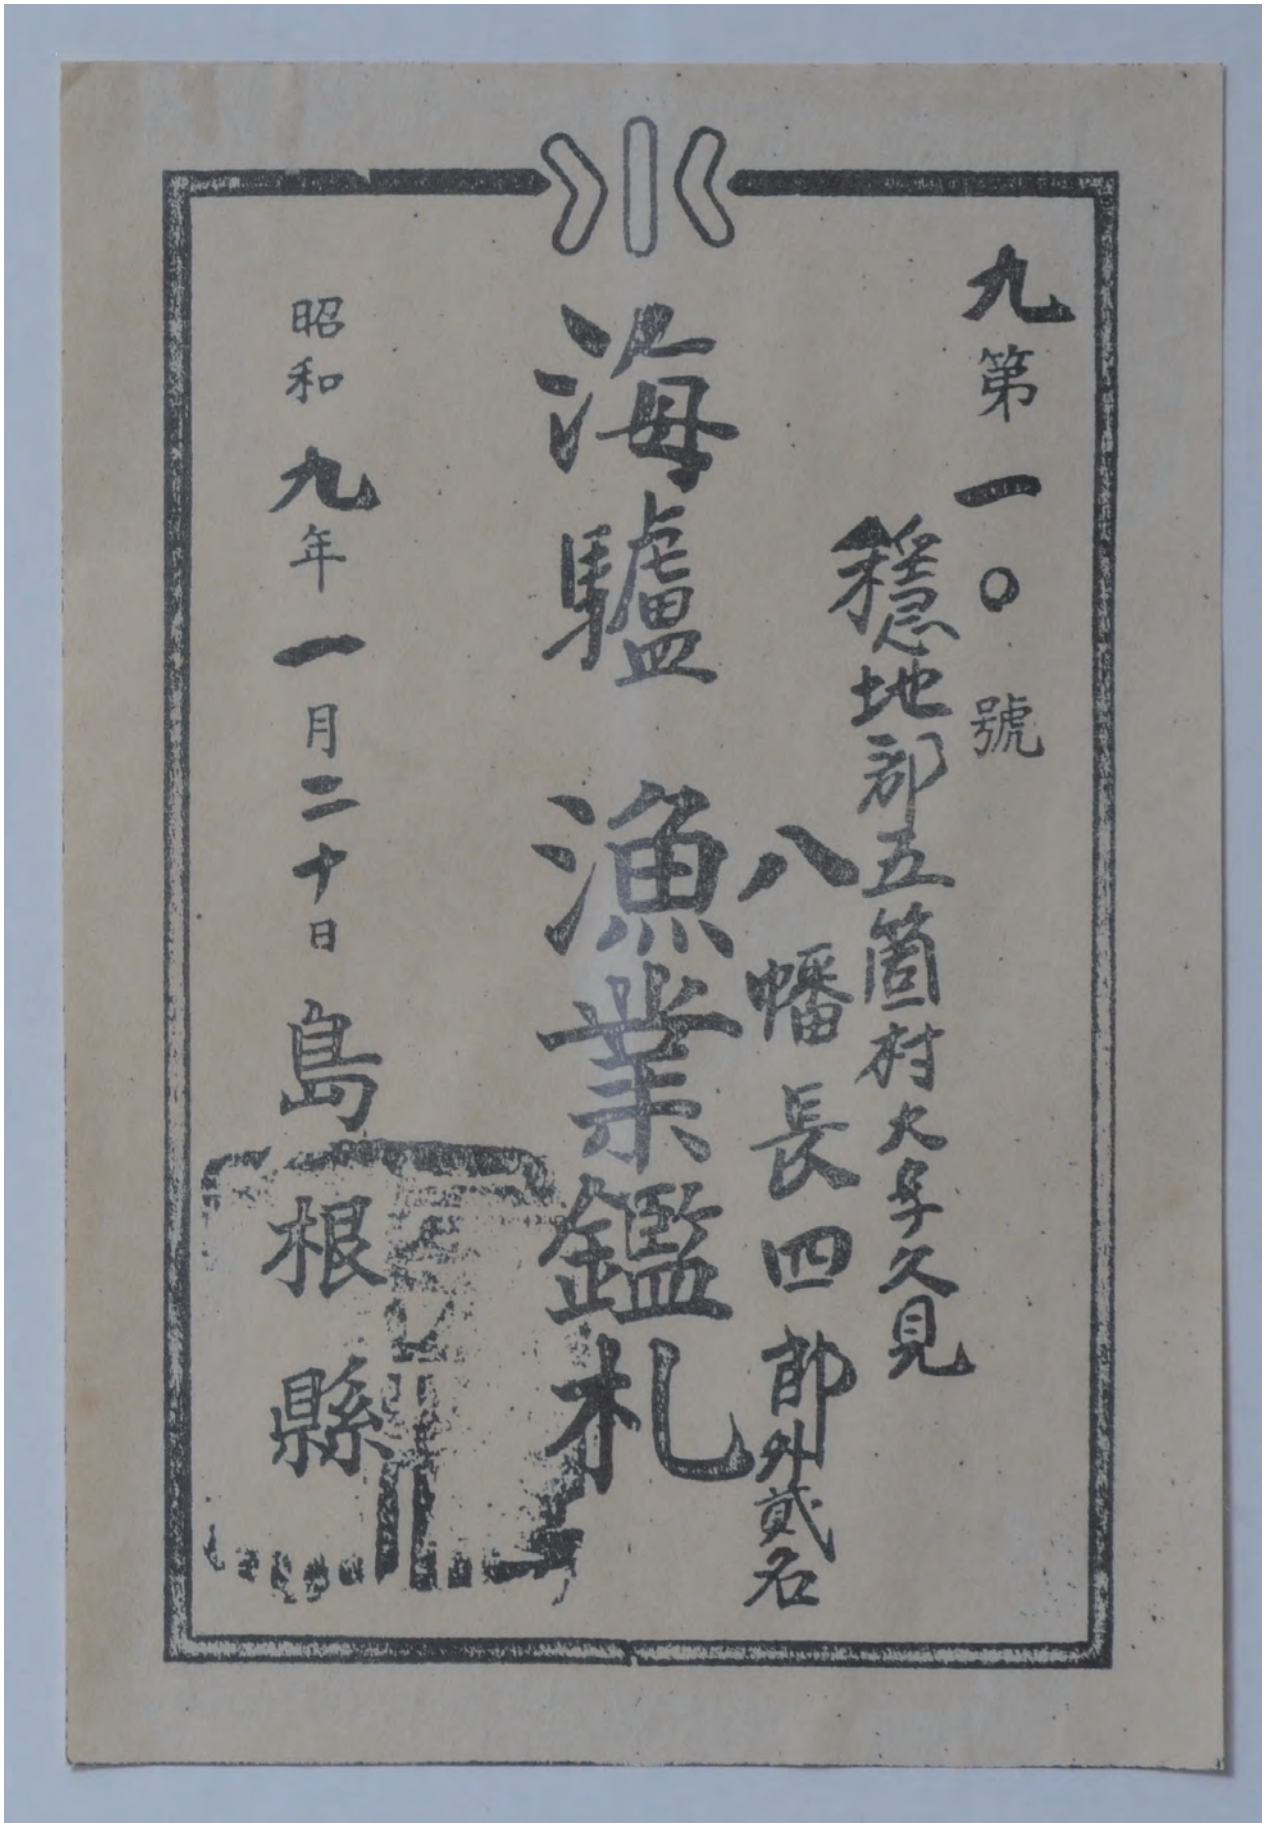 九第一〇號
穩地郡五箇村大字久見
八幡長四郎外貳名
海驢漁業鑑札
昭和九年一月二十日 島根縣